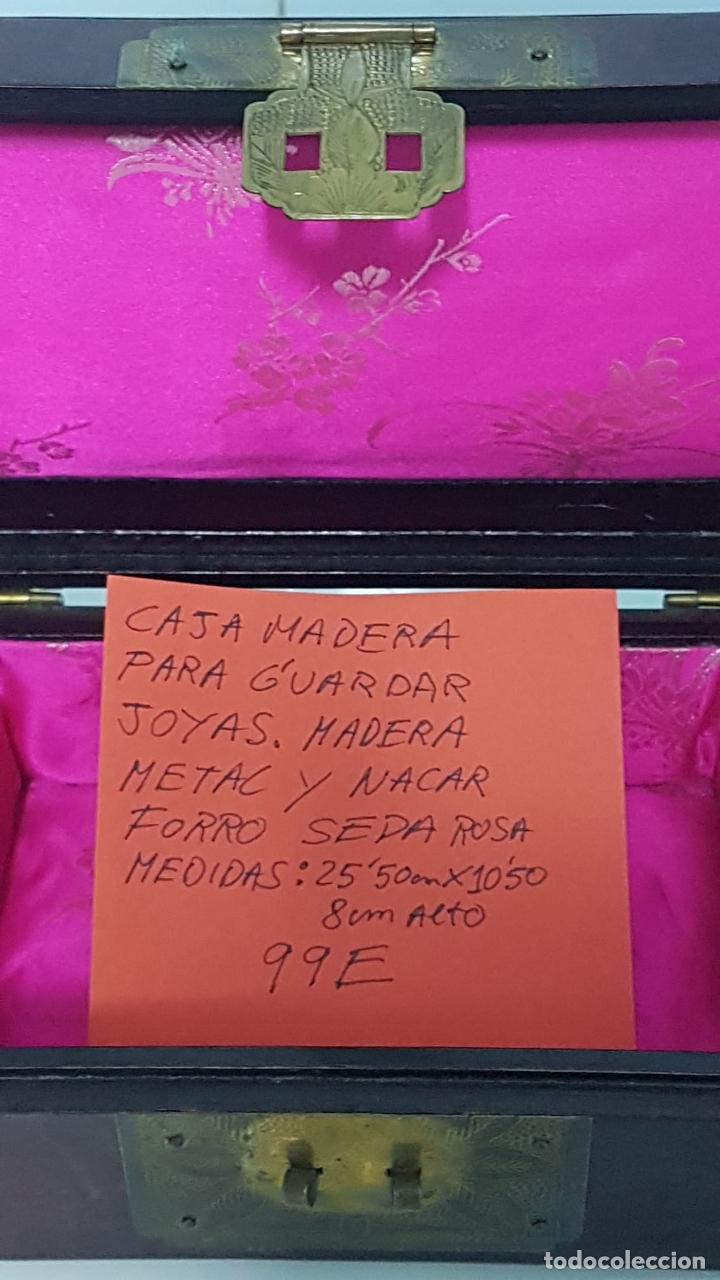 CAJA MADERA
PARA GUARDAR
JOYAS. MADERA
METAL Y NACAR
FORRO SEDA ROSA
MEDIDAS: 25'50cm X 10'50
8cm ALTO
99E
todocoleccion